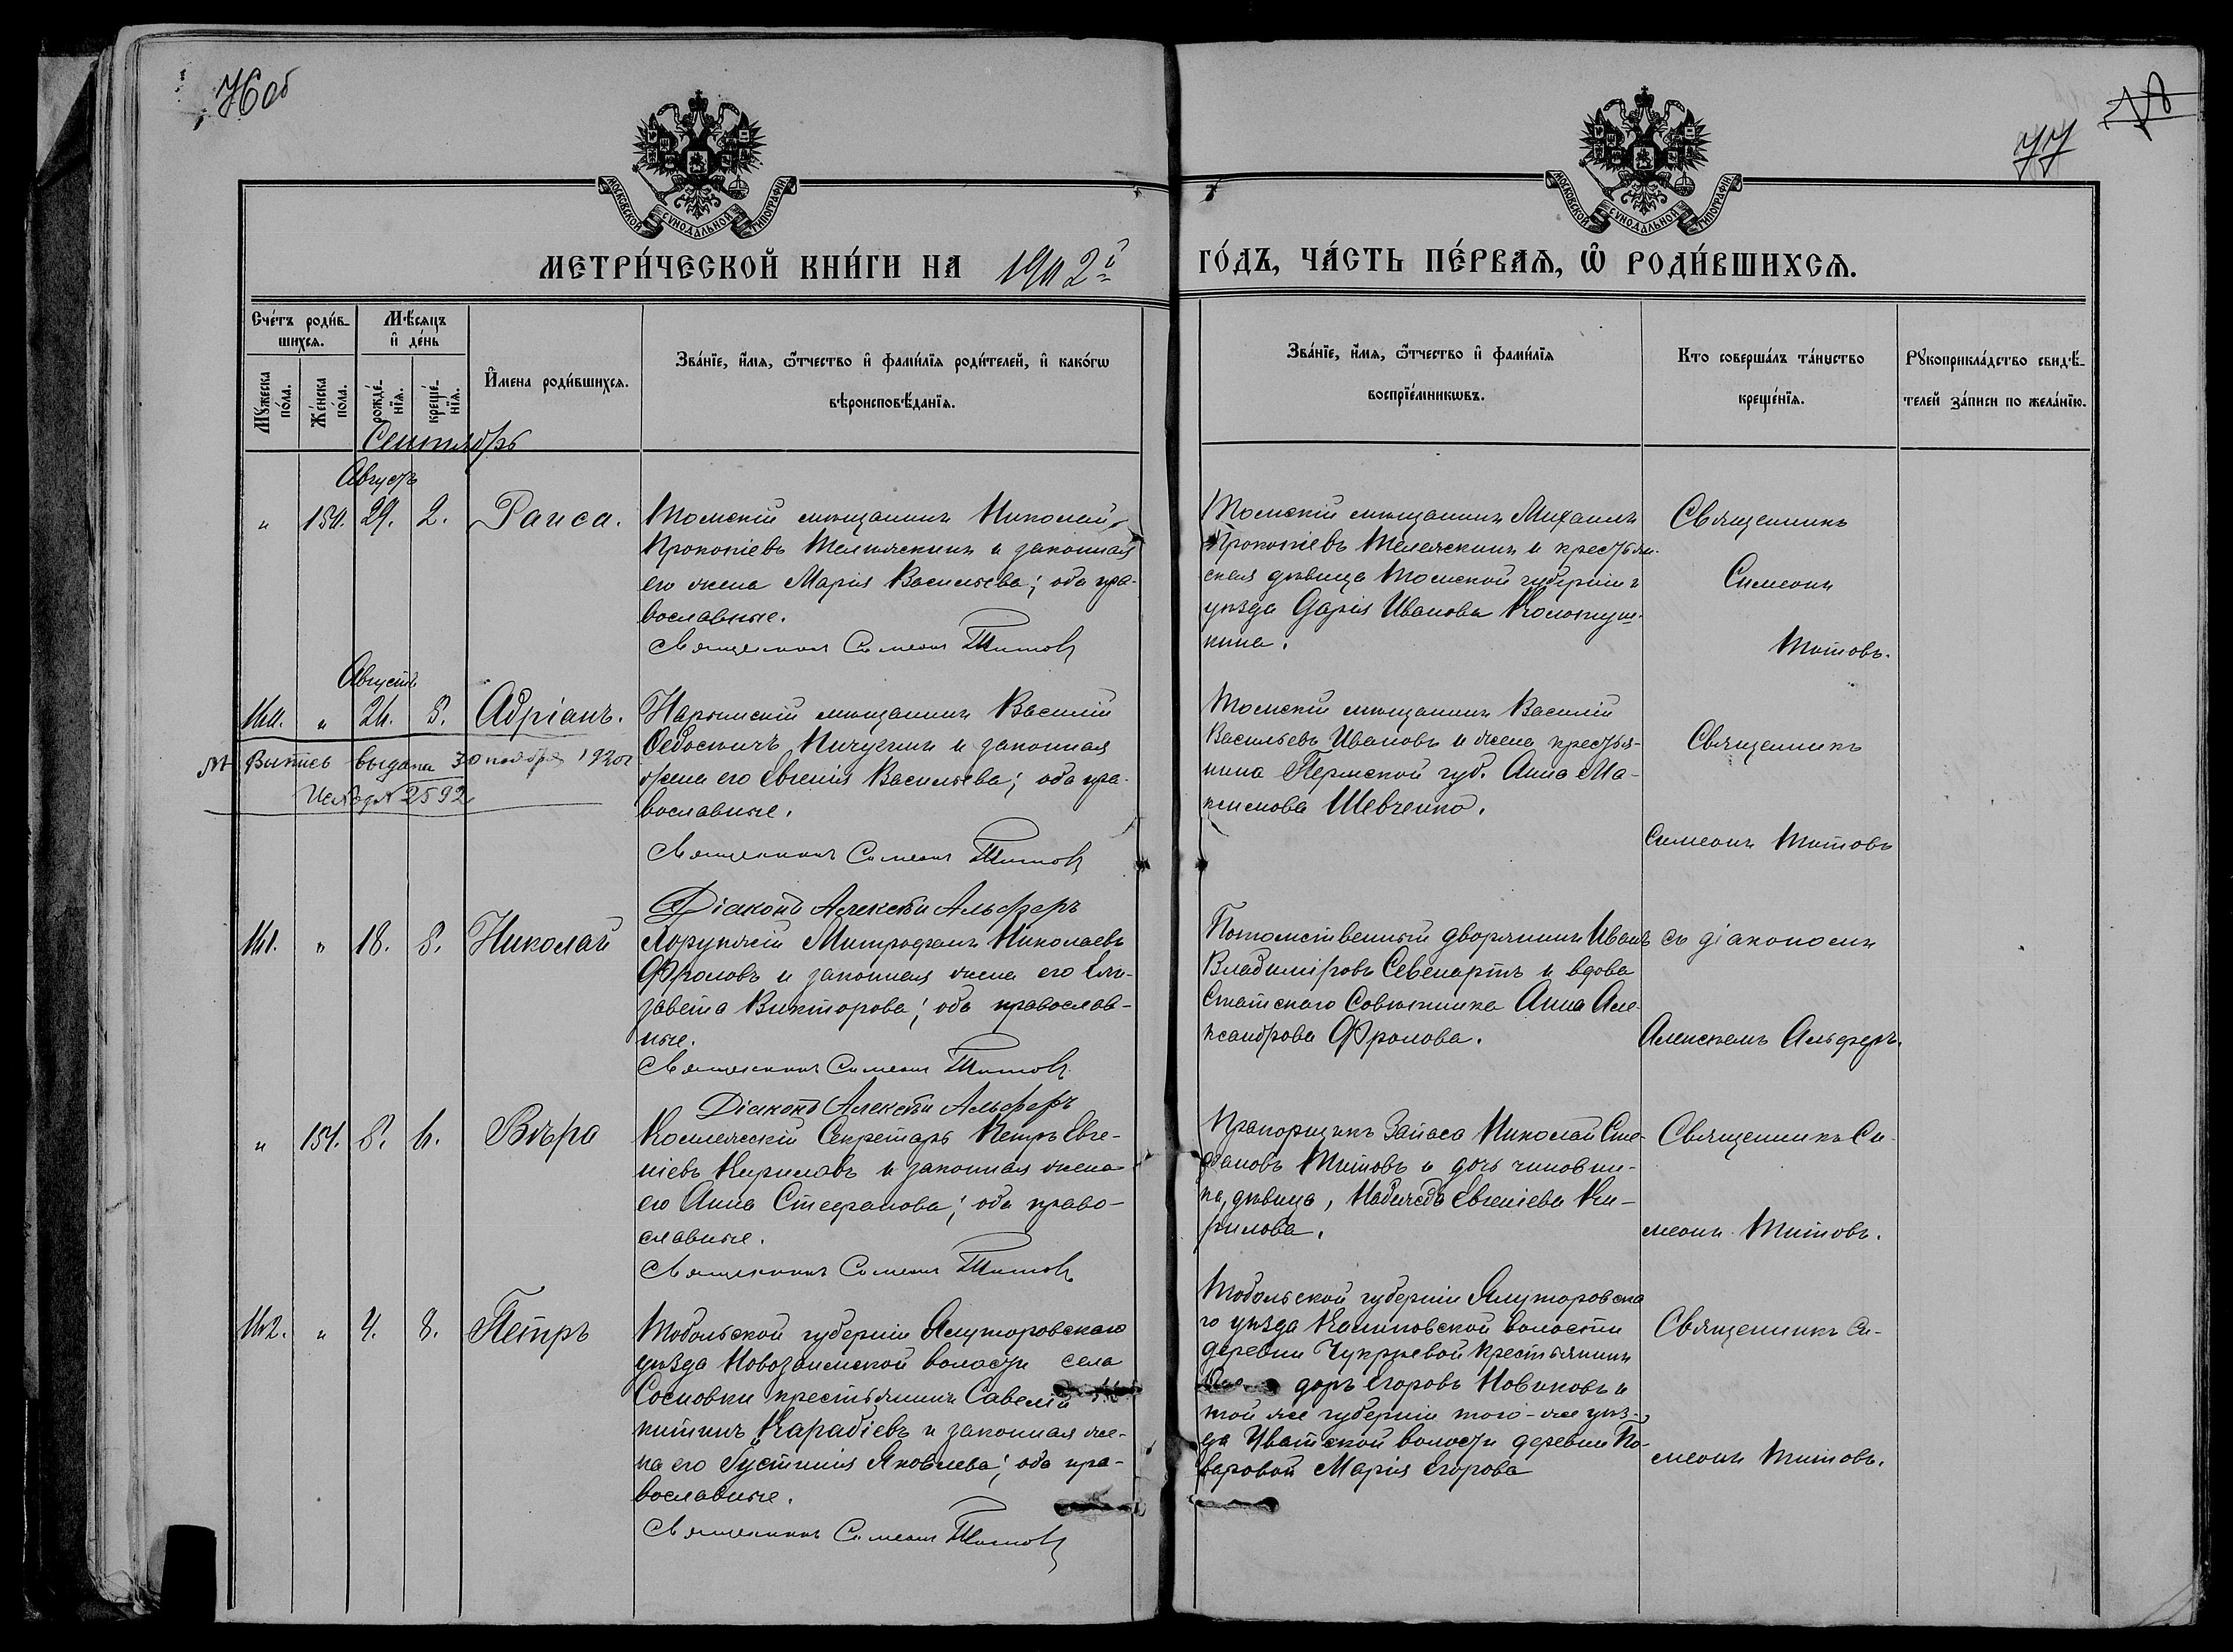 76 об
77
78
МОСКОВСКОЙ СѴНОДАЛЬНОЙ ТИПОГРАФІИ
МОСКОВСКОЙ СѴНОДАЛЬНОЙ ТИПОГРАФІИ
МЕТРИ́ЧЕСКОЙ КНИ́ГИ НА 1902й
ГО́ДЪ, ЧА́СТЬ ПЕ́РВАѦ, Ѡ҆ РОДИ́ВШИХСѦ.
Сче́тъ роди́в-
шихсѧ.
Мꙋ́жеска по́ла.
Же́нска по́ла.
Мѣ́сѧцъ
и҆ де́нь
рожде́-
нїѧ.
креще́-
нїѧ.
И҆мена роди́вшихсѧ.
Зва́нїе, и҆́мѧ, ѻ҆́тчество и҆ фами́лїѧ роди́телей, и҆ како́гѡ
вѣроисповѣ́данїѧ.
Зва́нїе, и҆́мѧ, ѻ҆́тчество и҆ фами́лїѧ
воспрїе́мникѡвъ.
Кто соверша́лъ та́инство
креще́нїѧ.
Рꙋкоприкла́дство свидѣ́-
телей за́писи по жела́нїю.
Сентябрь
Августъ
" 150. 29. 2. Раиса.
Томскій мѣщанинъ Николай
Прокопіевъ Телляскинъ и законная
его жена Марія Васильева; оба пра-
вославные.
Священникъ Симеонъ Титовъ
Томскій мѣщанинъ Михаилъ
Прокопіевъ Телляскинъ и крестьян-
ская дѣвица Томской губерніи и
уѣзда Дарія Иванова Колотуш-
кина.
Священникъ
Симеонъ
Титовъ.
Августъ
160. " 26. 8. Адріанъ.
Выпись выдана 30 ноября 1920 г
Исход № 2592
Нарымскій мѣщанинъ Василій
Ѳедосіичъ Пичугинъ и законная
жена его Евгенія Васильева; оба пра-
вославные.
Священникъ Симеонъ Титовъ
Томскій мѣщанинъ Василій
Васильевъ Ивановъ и жена крестья-
нина Пермской губ. Анна Ма-
ксимова Шевченко.
Священникъ
Симеонъ Титовъ
Діаконъ Алексѣй Альферъ
161. " 18. 8. Николай
Хорунжій Митрофанъ Николаевъ
Фроловъ и законная жена его Ели-
завета Викторова; оба православ-
ные.
Священникъ Симеонъ Титовъ
Потомственный дворянинъ Иванъ
Владиміровъ Севенартъ и вдова
Статскаго Совѣтника Анна Але-
ксандрова Фролова.
съ діакономъ
Алексѣемъ Альферъ.
Діаконъ Алексѣй Альферъ
" 151. 8. 6. Вѣра
Коллежскій Секретарь Петръ Евге-
ніевъ Кириловъ и законная жена
его Анна Стефанова; оба право-
славные.
Священникъ Симеонъ Титовъ
Прапорщикъ Запаса Николай Сте-
фановъ Титовъ и дочь чиновни-
ка, дѣвица, Надежда Евгеніева Ки-
рилова.
Священникъ Си-
меонъ Титовъ.
162. " 4. 8. Петръ
Тобольской губерніи Ялуторовскаго
уѣзда Новозаимской волости села
Сосновки крестьянинъ Савелій
китинъ Карабіевъ и законная же-
на его Густинія Яковлева; оба пра-
вославные.
Священникъ Симеонъ Титовъ
Тобольской губерніи Ялуторовска
го уѣзда Калиновской волости
деревни Чукреевой крестьянинъ
доръ Егоровъ Новиковъ и
той же губерніи того-же уѣз-
да Уватской волости деревни По-
варовой Марія Егорова
Священникъ Си-
меонъ Титовъ.